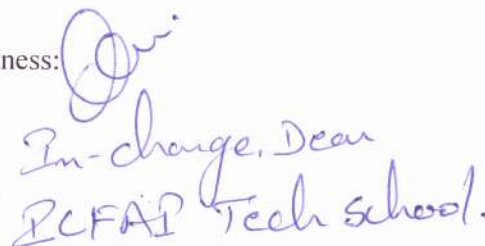 ness:
In-charge, Dean
ICFAI Tech school.